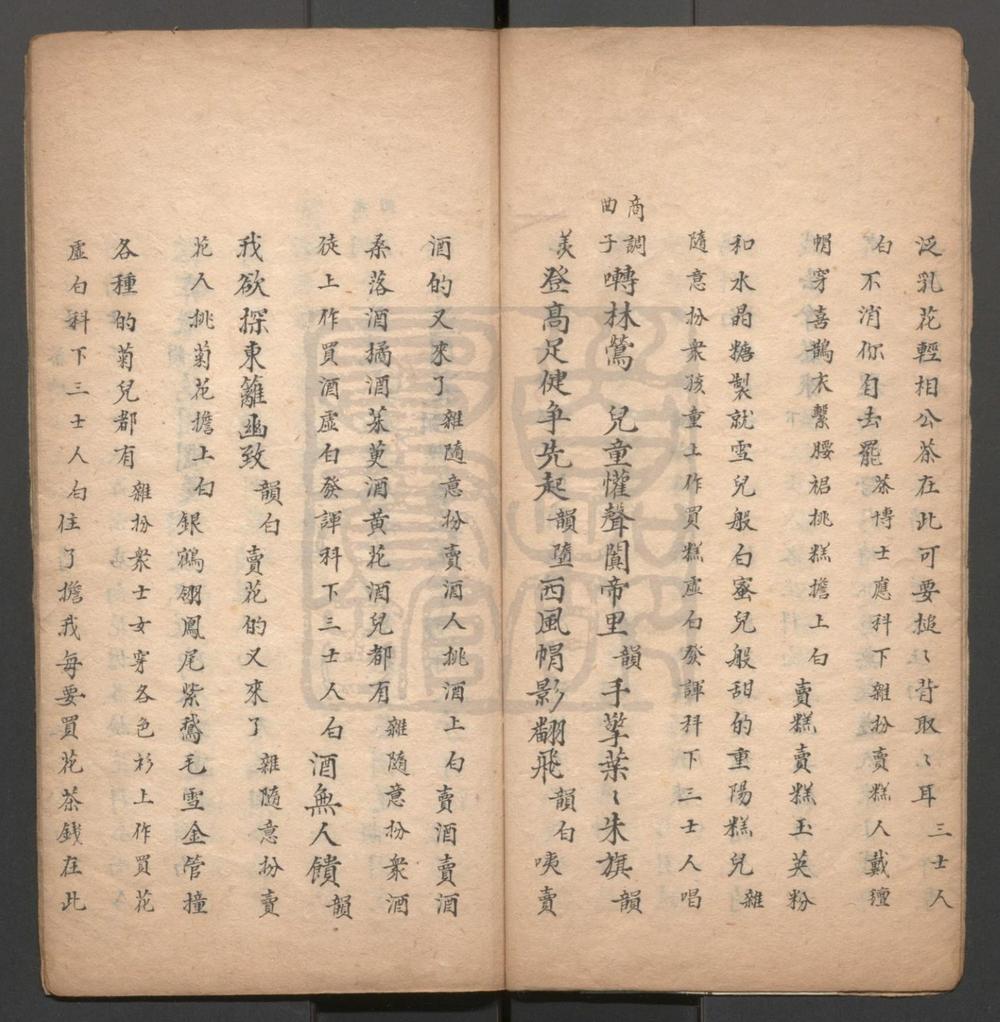 泛乳花輕相公茶在此可要搥〻背取〻耳三士人
白不消你自去罷茶博士應科下雜扮賣糕人戴氊
帽穿喜鵲衣繫腰裙挑糕擔上白賣糕賣糕玉英粉
和水晶糖製就雪兒般白蜜兒般甜的重陽糕兒雜
隨意扮衆孩童上作買糕虛白發諢科下三士人唱
商調曲子囀林鶯 兒童懽聲闐帝里韻手擎葉〻朱旗韻
羡登高足健争先起韻墮西風帽影翻飛韻白咦賣
酒的又來了雜隨意扮賣酒人挑酒上白賣酒賣酒
桑落酒橘酒茱萸酒黄花酒兒都有雜隨意扮衆酒
徒上作買酒虛白發諢科下三士人白酒無人饋韻
我欲探東籬幽致韻白賣花的又來了雜隨意扮賣
花人挑菊花擔上白銀鶴翎鳳尾紫鵞毛雪金管撞
各種的菊兒都有雜扮衆士女穿各色衫上作買花
虛白科下三士人白住了擔我每要買花茶錢在此